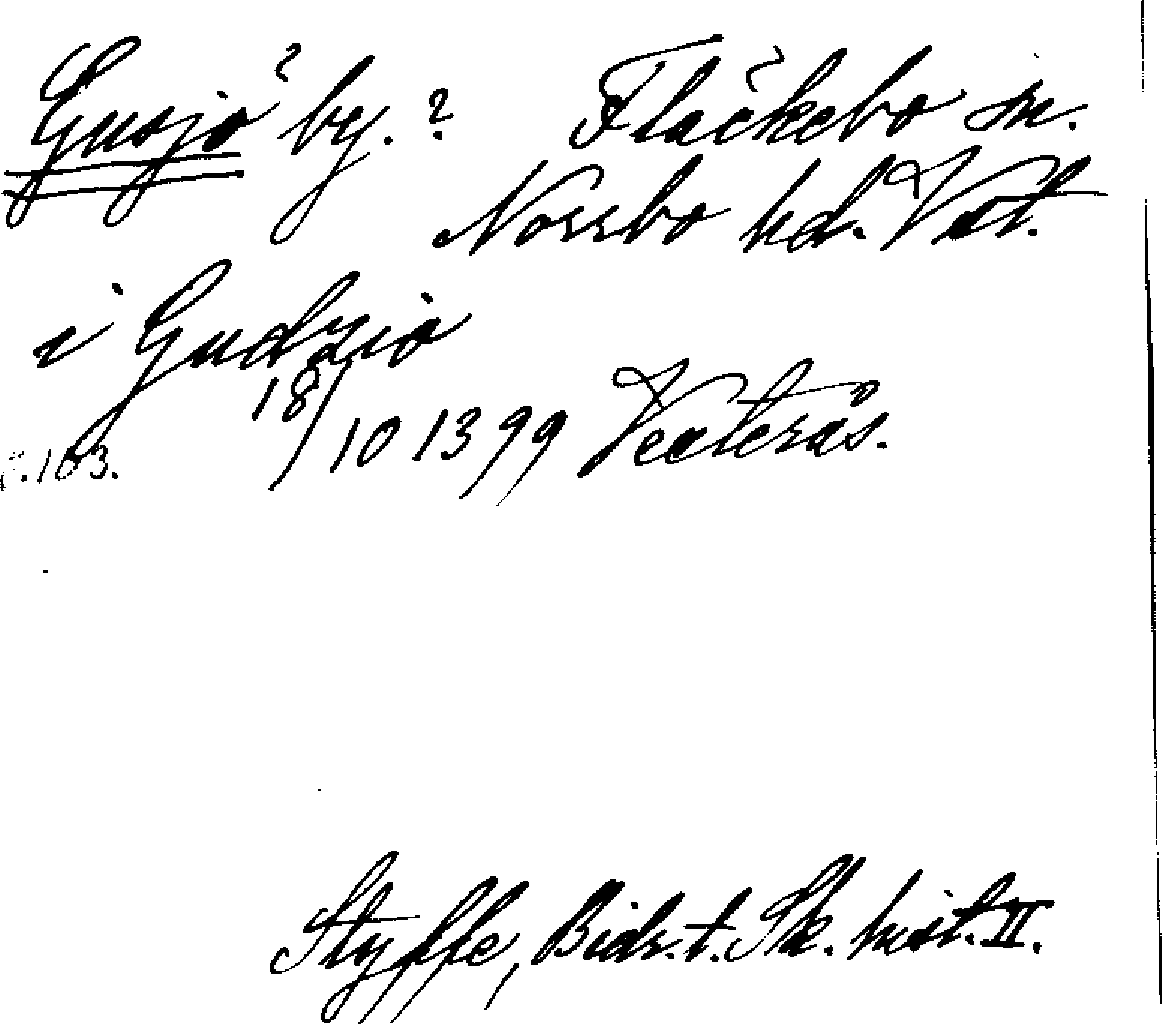 Gusjö? by.? Fläckebo sn.
Norrbo hd. Vstl.
i Gudzio
18/10 1399 Vesterås.
s. 103.
Styffe, Bidr. t. Sk. hist. II.